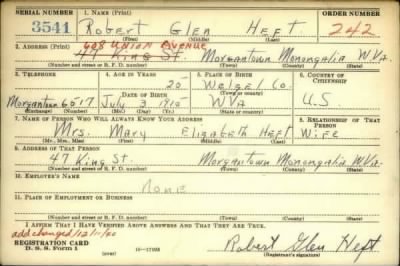 SERIAL NUMBER 1. NAME (Print) ORDER NUMBER
3541 Robert Glen Heft 242
(First) (Middle) (Last)
2. ADDRESS (Print) 608 UNION AVENUE
47 King St. Morgantown Monongalia W.Va.
(Number and street or R. F. D. number) (Town) (County) (State)
3. TELEPHONE 4. AGE IN YEARS 5. PLACE OF BIRTH 6. COUNTRY OF CITIZENSHIP
20
DATE OF BIRTH (Town or county)
Morgantown 6517 July 3 W Va U.S
(Exchange) (Number) (Mo.) (Day) (Yr.) (State or country)
7. NAME OF PERSON WHO WILL ALWAYS KNOW YOUR ADDRESS 8. RELATIONSHIP OF THAT PERSON
Mrs. Mary Elizabeth Heft Wife
(Mr., Mrs., Miss) (First) (Middle) (Last)
9. ADDRESS OF THAT PERSON
47 King St. Morgantown Monongalia W.Va.
(Number and street or R. F. D. number) (Town) (County) (State)
10. EMPLOYER'S NAME
None
11. PLACE OF EMPLOYMENT OR BUSINESS
(Number and street or R. F. D. number) (Town) (County) (State)
I AFFIRM THAT I HAVE VERIFIED ABOVE ANSWERS AND THAT THEY ARE TRUE.
add changed 12/11/40
REGISTRATION CARD Robert Glen Heft
D. S. S. Form 1 (over) 16—17105 (Registrant's signature)